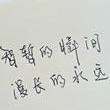 短暂的瞬间
漫长的永远